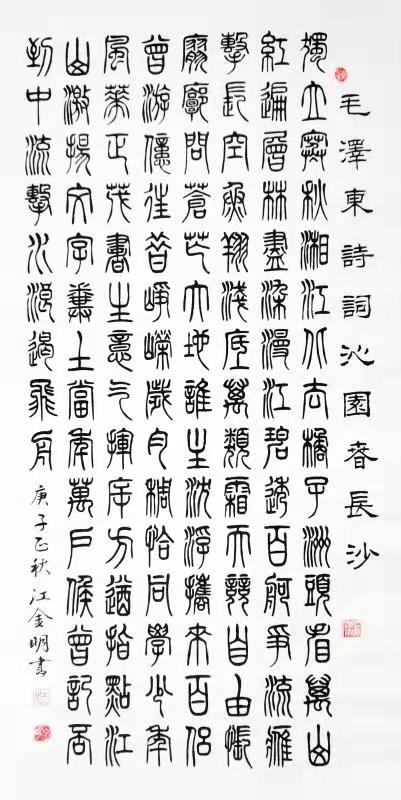 毛澤東詩詞沁園春長沙
獨立寒秋湘江北去橘子洲頭看萬山
紅遍層林盡染漫江碧透百舸爭流鷹
擊長空魚翔淺底萬類霜天競自由悵
寥廓問蒼茫大地誰主沈浮攜來百侶
曾游憶往昔崢嶸歲月稠恰同學少年
風華正茂書生意气揮斥方遒指點江
山激揚文字糞土當年萬戶侯曾記否
到中流擊水浪遏飛舟
庚子正秋江金明書